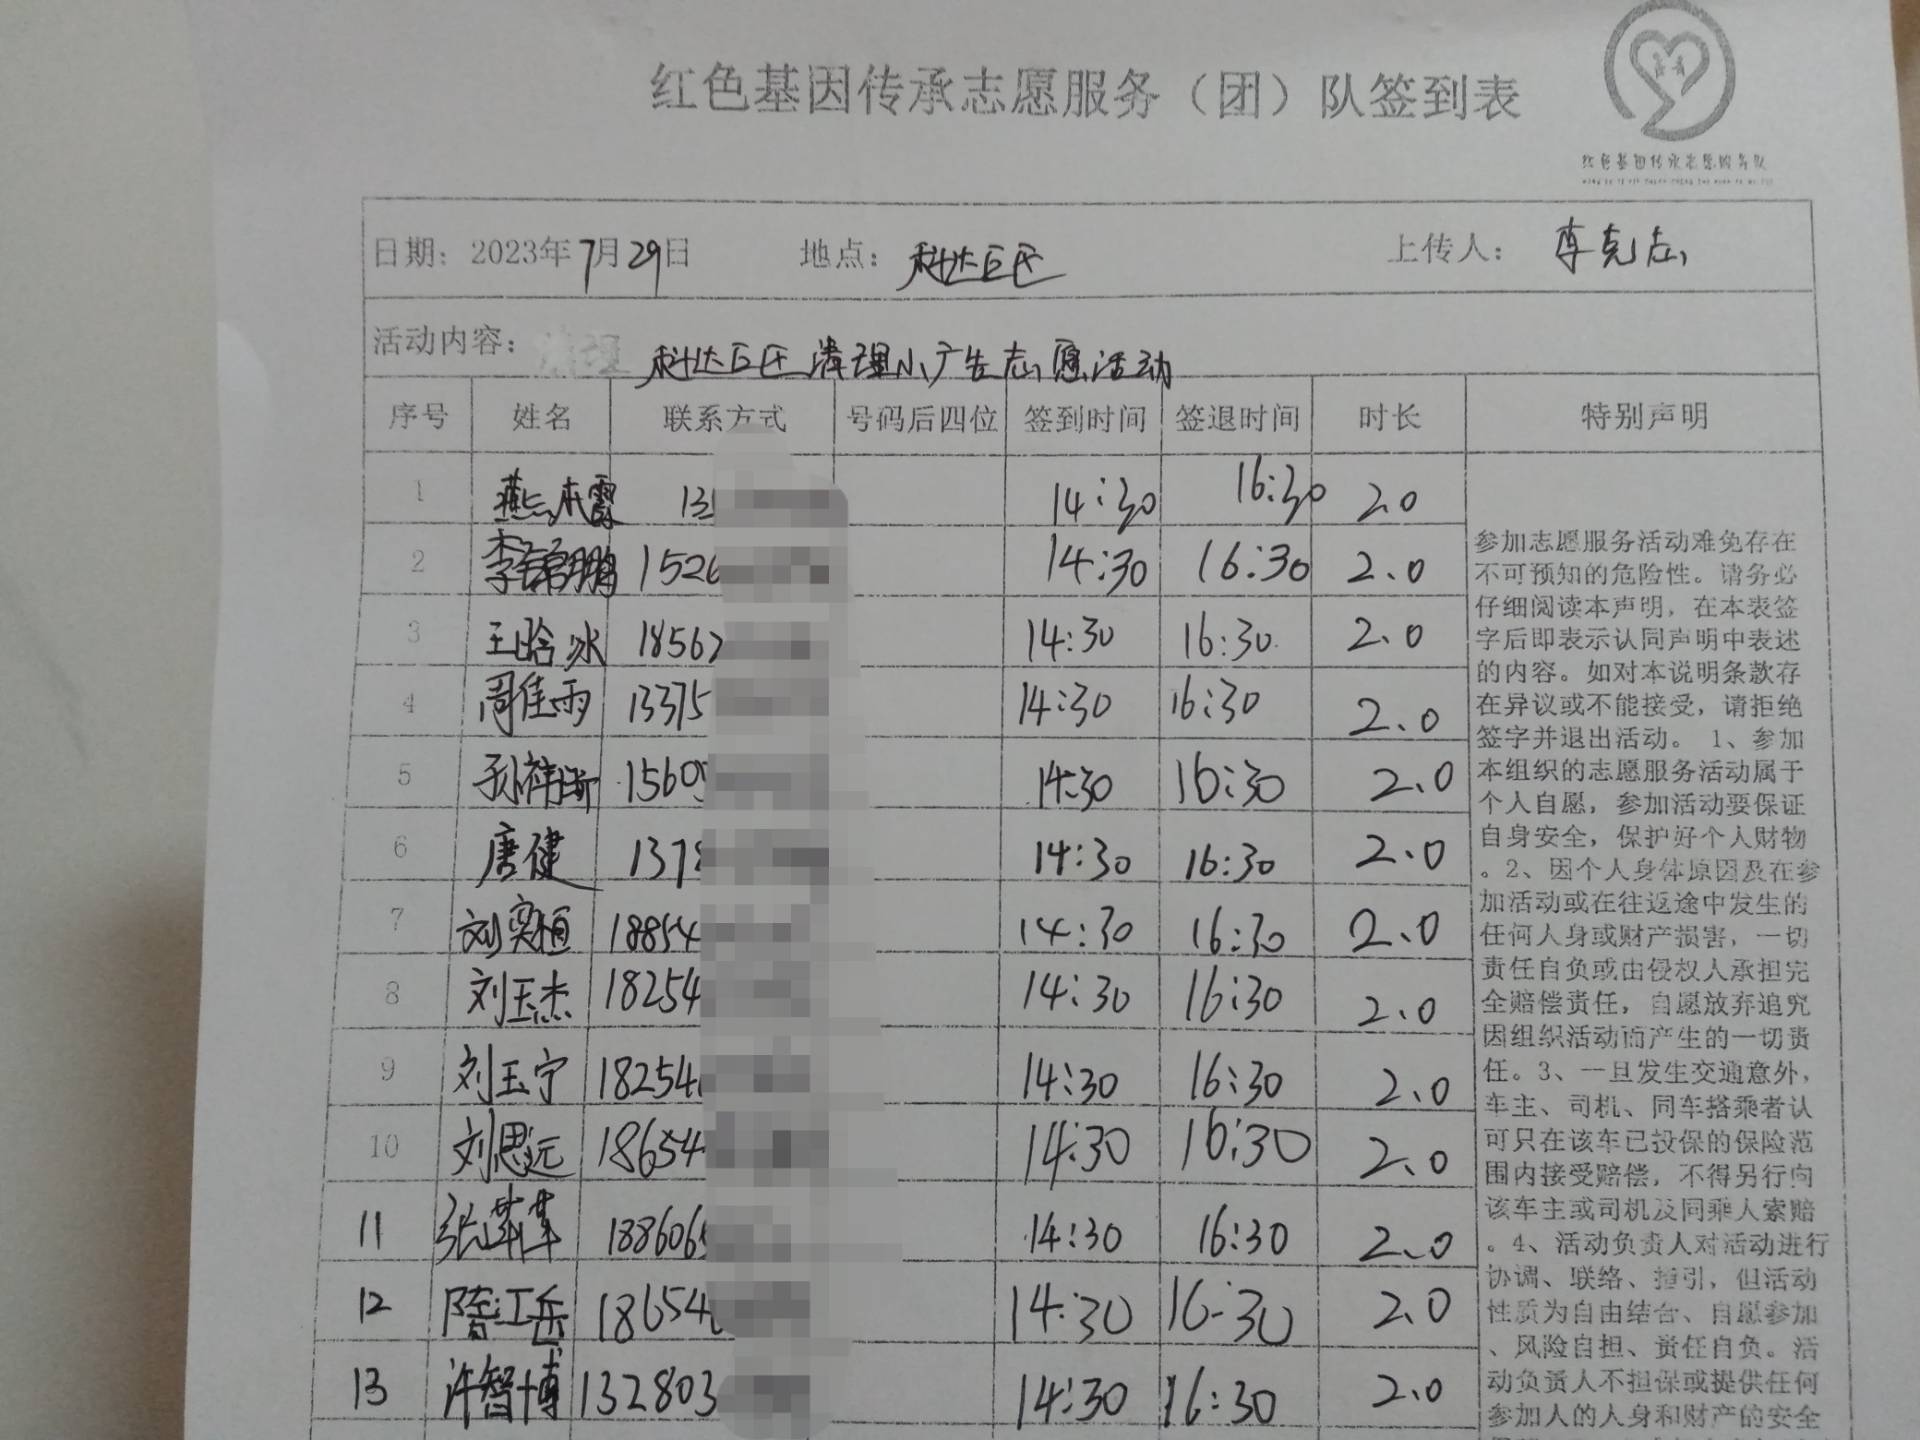 红色基因传承志愿服务（团）队签到表
红色基因传承志愿服务队
日期：2023年7月29日 地点：科达E区 上传人：李克志
活动内容：清理 科达E区清理小广告志愿活动
序号 姓名 联系方式 号码后四位 签到时间 签退时间 时长 特别声明
1 燕 霞 13 14:30 16:30 2.0
2 李锦鹏 1526 14:30 16:30 2.0
3 王晗冰 18567 14:30 16:30 2.0
4 周佳雨 13375 14:30 16:30 2.0
5 孙祥 15605 14:30 16:30 2.0
6 唐健 1378 14:30 16:30 2.0
7 刘奕恒 18854 14:30 16:30 2.0
8 刘玉杰 18254 14:30 16:30 2.0
9 刘玉宁 18254 14:30 16:30 2.0
10 刘思远 18654 14:30 16:30 2.0
11 张苹苹 188606 14:30 16:30 2.0
12 隋江岳 18654 14:30 16:30 2.0
13 许智博 132803 14:30 16:30 2.0
参加志愿服务活动难免存在
不可预知的危险性。请务必
仔细阅读本声明，在本表签
字后即表示认同声明中表述
的内容。如对本说明条款存
在异议或不能接受，请拒绝
签字并退出活动。1、参加
本组织的志愿服务活动属于
个人自愿，参加活动要保证
自身安全，保护好个人财物
。2、因个人身体原因及在参
加活动或在往返途中发生的
任何人身或财产损害，一切
责任自负或由侵权人承担完
全赔偿责任，自愿放弃追究
因组织活动而产生的一切责
任。3、一旦发生交通意外，
车主、司机、同车搭乘者认
可只在该车已投保的保险范
围内接受赔偿，不得另行向
该车主或司机及同乘人索赔
。4、活动负责人对活动进行
协调、联络、指引，但活动
性质为自由结合、自愿参加
、风险自担、责任自负。活
动负责人不担保或提供任何
参加人的人身和财产的安全